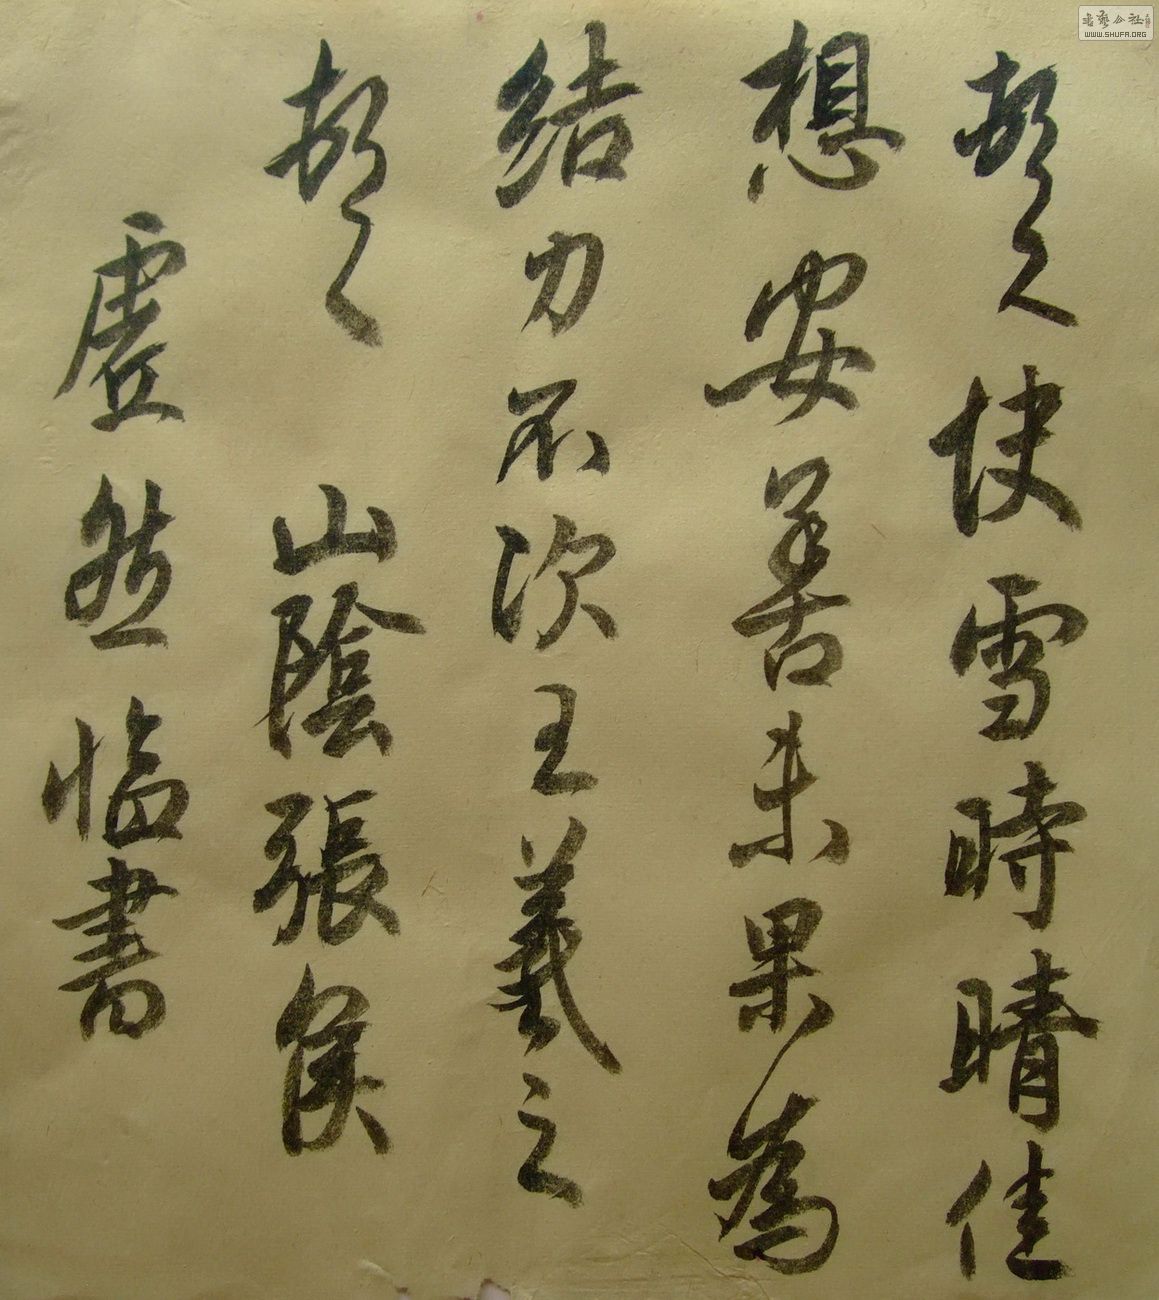 頓之快雪時晴佳
想安善未果為
結力不次王羲之
頓之
山陰張侯
虛然臨書
書藝公社
WWW.SHUFA.ORG